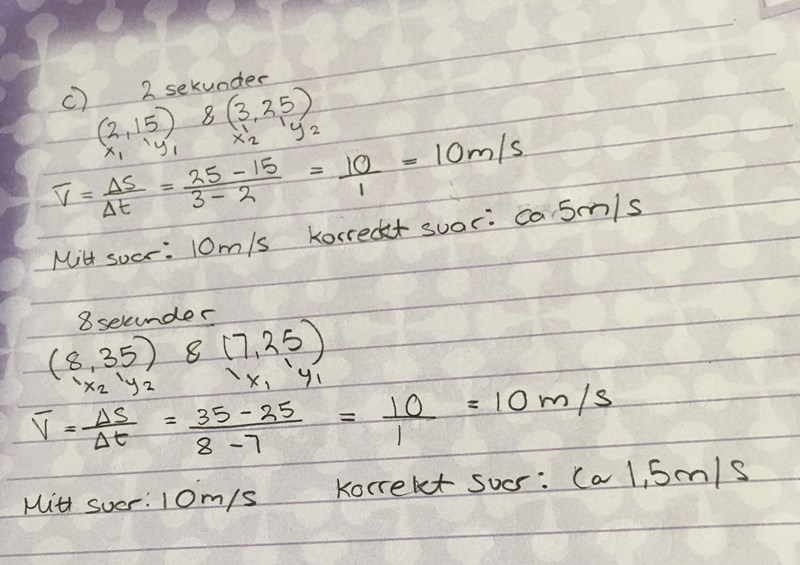 c) 2 sekunder
(2,15) & (3,25)
x₁ y₁ x₂ y₂
V̅ = ΔS/Δt = 25 - 15/3 - 2 = 10/1 = 10m/s
Mitt svar: 10m/s korreckt svar: ca 5m/s
8 sekunder
(8,35) & (7,25)
x₂ y₂ x₁ y₁
V̅ = ΔS/Δt = 35 - 25/8 - 7 = 10/1 = 10 m/s
Mitt svar: 10m/s korrekt svar: ca 1,5m/s